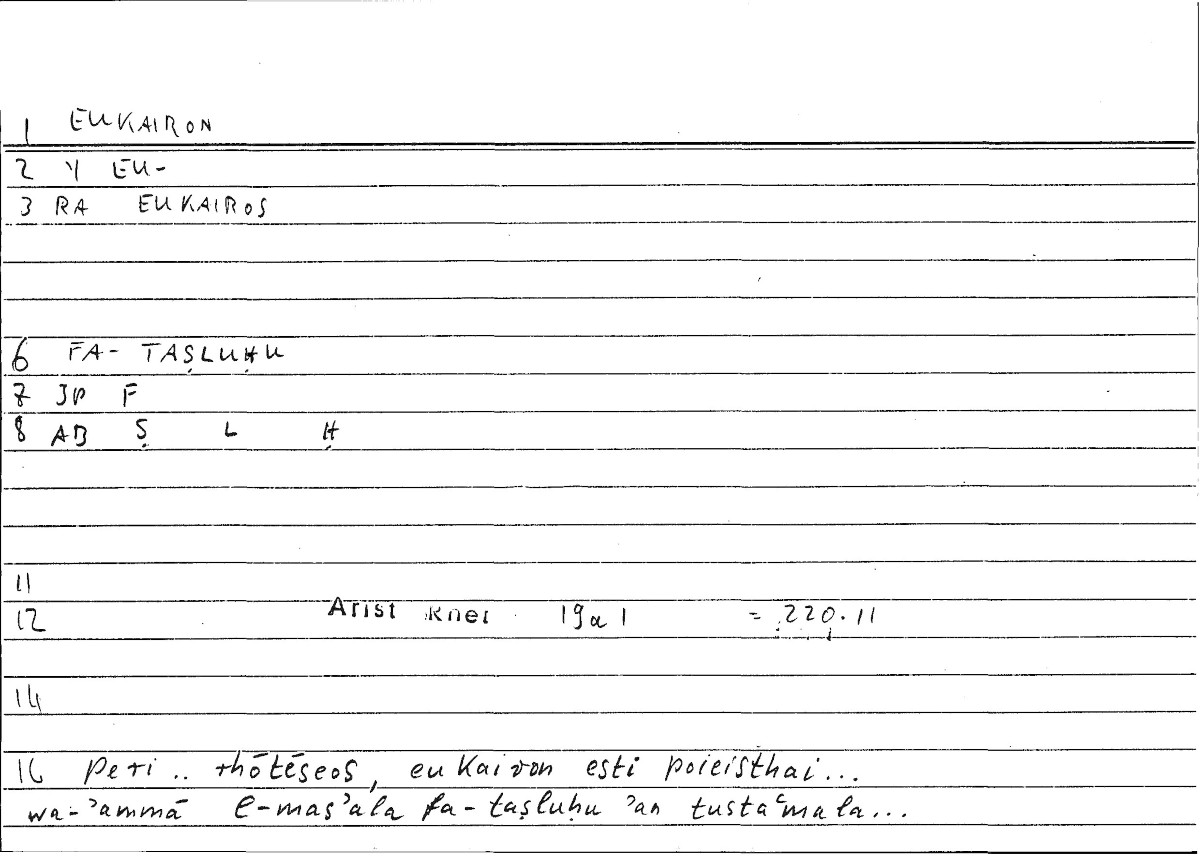 1 EUKAIRON
2 Y EU-
3 RA EUKAIROS
6 FA- TAṢLUḤU
7 JP F
8 AB Ṣ L Ḥ
11
12 Arist Rhet 19a1 = 220.11
14
16 peri .. rhōtēseos, eukairon esti poieisthai...
wa-ʾammā l-masʾala fa-taṣluḥu ʾan tustaʿmala...